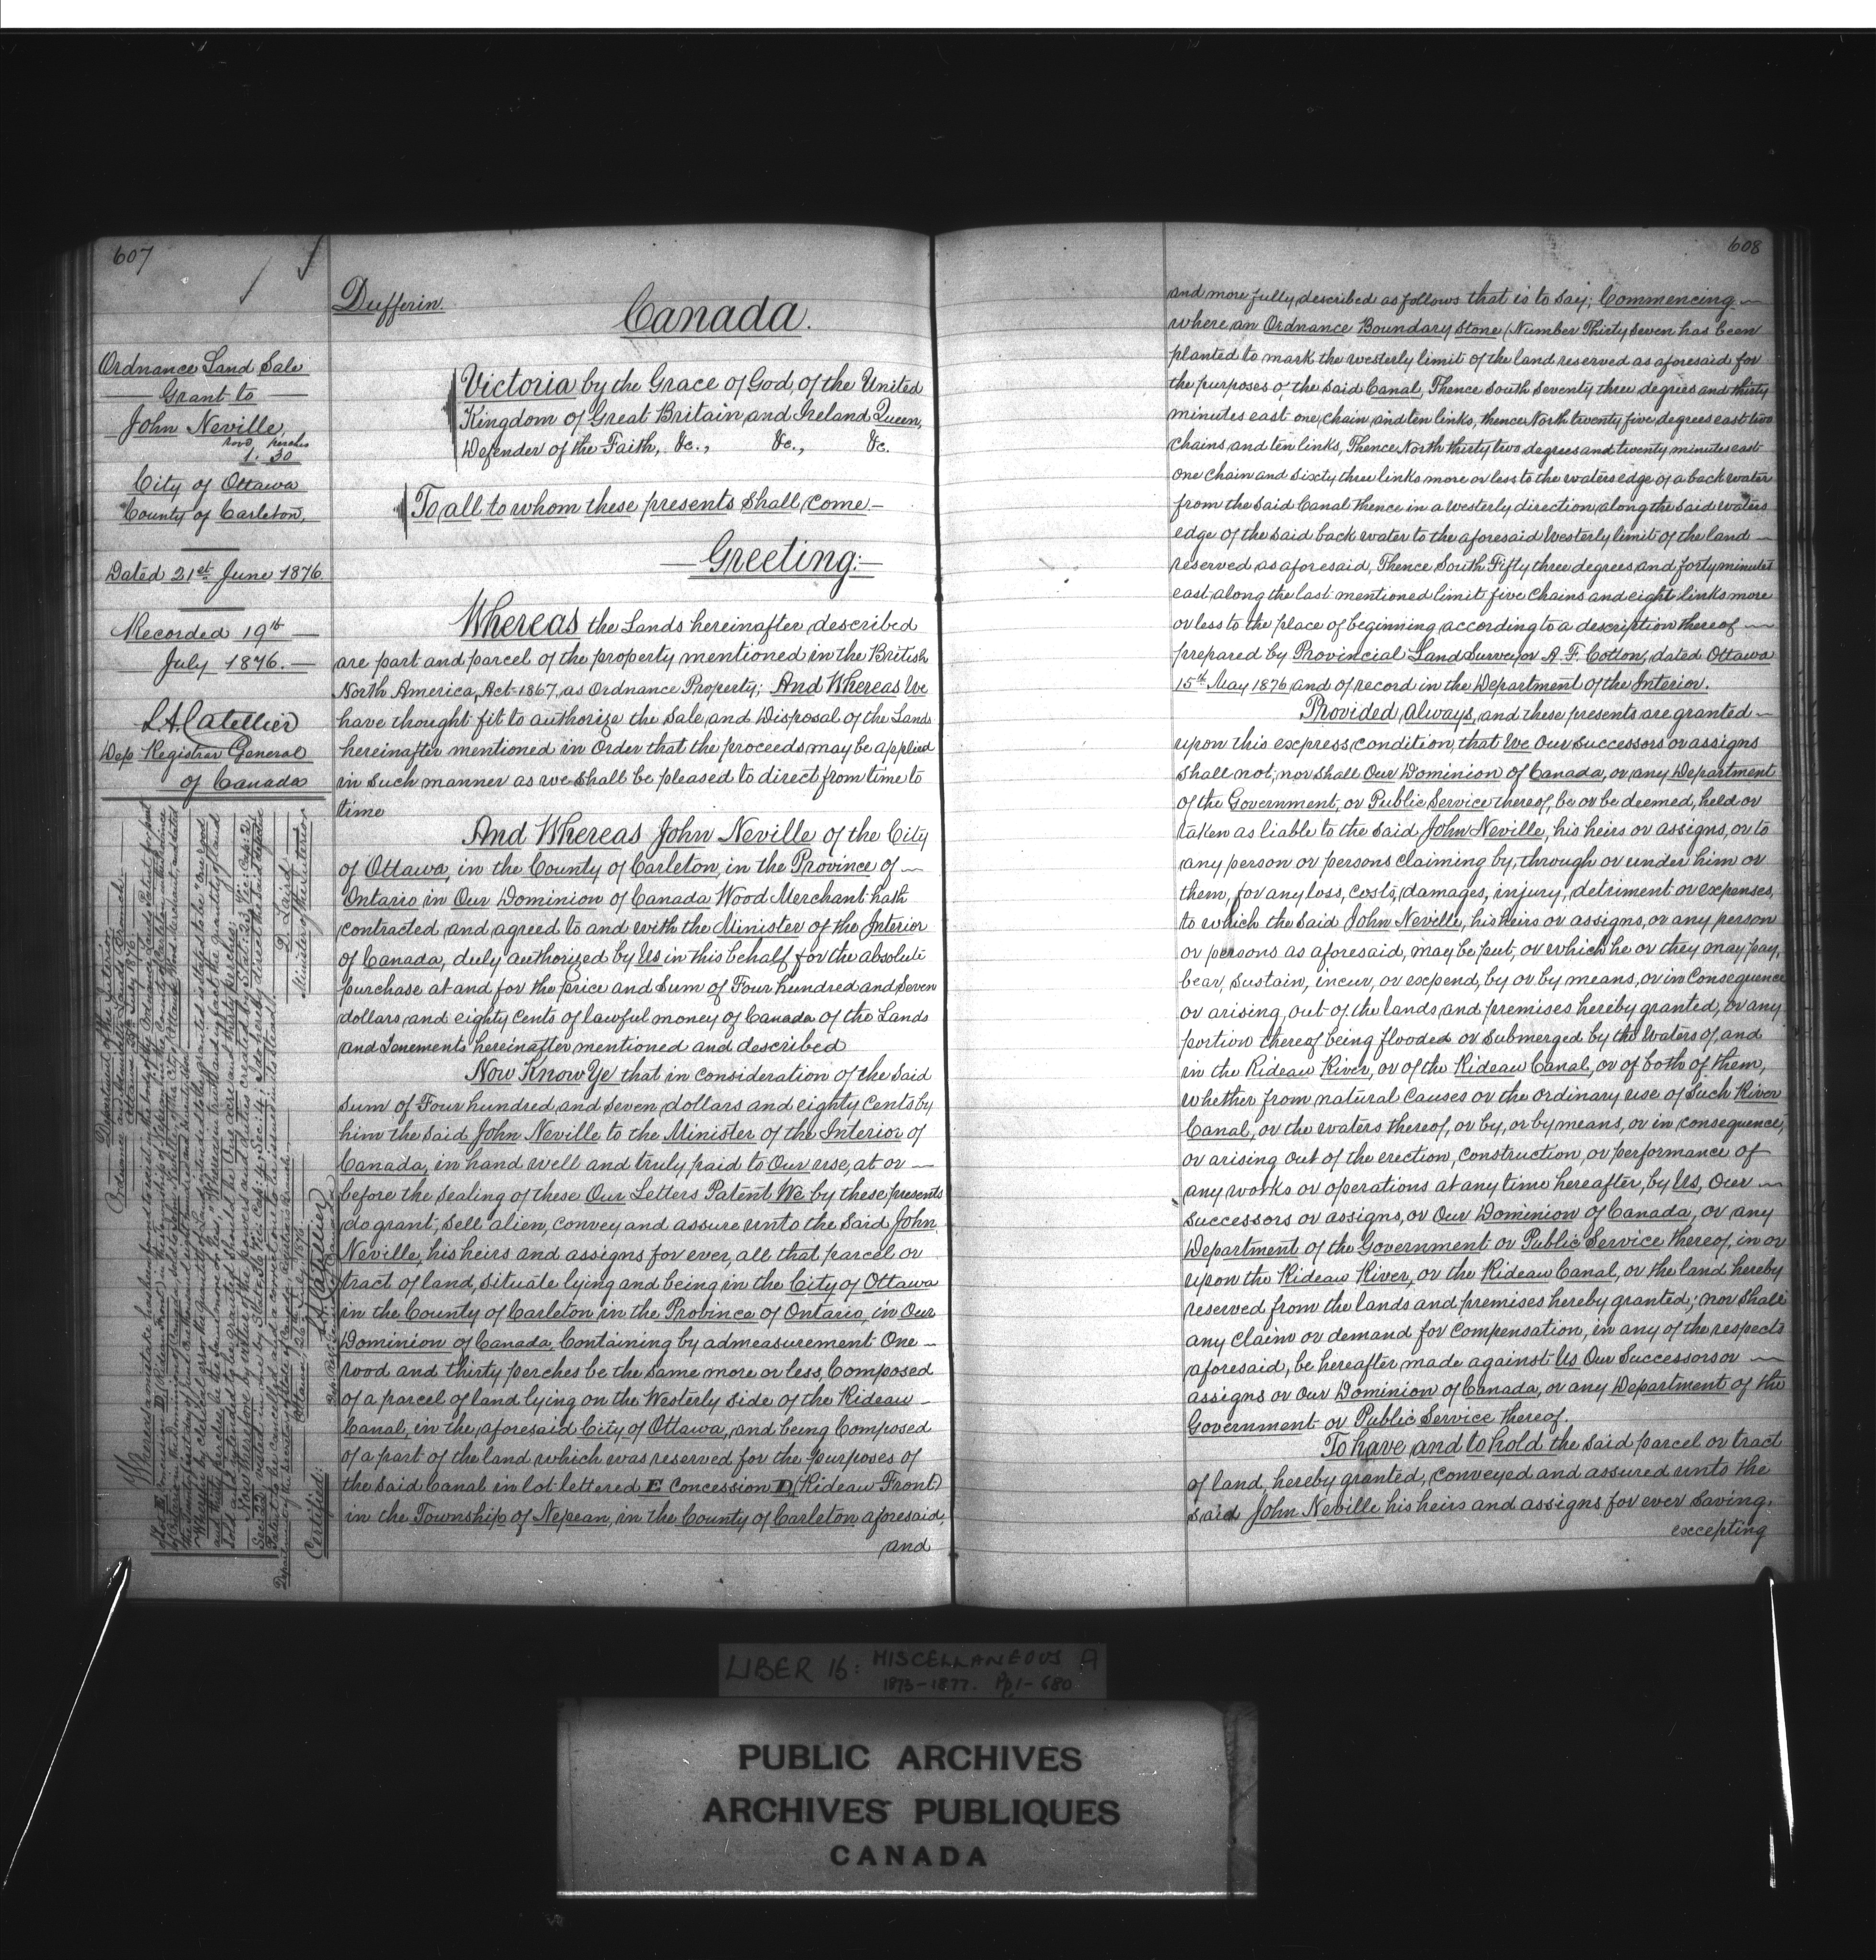 607
Dufferin.
Canada.
Ordnance Land Sale
Grant to
John Neville,
rood perches
1. 30
City of Ottawa
County of Carleton,
Dated 21st June 1876
Recorded 19th
July 1876.
L.A. Catellier
Dep Registrar General
of Canada
Victoria by the Grace of God, of the United
Kingdom of Great Britain and Ireland Queen,
Defender of the Faith, &c., &c., &c.
To all to whom these presents shall come—
—Greeting:—
Whereas the Lands hereinafter described
are part and parcel of the property mentioned in the British
North America, Act 1867, as Ordnance Property; And Whereas We
have thought fit to authorize the Sale and Disposal of the Lands
hereinafter mentioned in Order that the proceeds may be applied
in such manner as we shall be pleased to direct from time to
time
And Whereas John Neville of the City
of Ottawa, in the County of Carleton, in the Province of
Ontario in Our Dominion of Canada Wood Merchant hath
contracted and agreed to and with the Minister of the Interior
of Canada, duly authorized by Us in this behalf for the absolute
purchase at and for the price and Sum of Four hundred and seven
dollars and eighty cents of lawful money of Canada of the Lands
and Tenements hereinafter mentioned and described
Now Know Ye that in consideration of the said
sum of Four hundred and seven dollars and eighty cents by
him the said John Neville to the Minister of the Interior of
Canada, in hand well and truly paid to Our use, at or
before the sealing of these Our Letters Patent We by these presents
do grant, sell alien, convey and assure unto the said John
Neville, his heirs and assigns for ever, all that parcel or
tract of land, situate lying and being in the City of Ottawa
in the County of Carleton in the Province of Ontario, in Our
Dominion of Canada Containing by admeasurement One
rood and thirty perches be the same more or less, Composed
of a parcel of land lying on the Westerly side of the Rideau
Canal, in the aforesaid City of Ottawa, and being Composed
of a part of the land which was reserved for the purposes of
the said Canal in lot lettered E Concession D, (Rideau Front)
in the Township of Nepean, in the County of Carleton aforesaid,
and
Department of the Interior,
Ordnance and Admiralty Lands Branch.
Ottawa 25th July 1876
Minister of the Interior
D. Laird
Certified:
L.A. Catellier
608
and more fully described as follows that is to say; Commencing
where an Ordnance Boundary Stone (Number Thirty Seven has been
planted to mark the westerly limit of the land reserved as aforesaid for
the purposes of the said Canal, Thence South seventy three degrees and thirty
minutes east one chain and ten links, thence North twenty five degrees east two
chains and ten links, Thence North thirty two degrees and twenty minutes east
one chain and sixty three links more or less to the waters edge of a back water
from the said Canal thence in a Westerly direction along the said waters
edge of the said back water to the aforesaid Westerly limit of the land
reserved as aforesaid, Thence South Fifty three degrees and forty minutes
east along the last mentioned limit five chains and eight links more
or less to the place of beginning according to a description thereof
prepared by Provincial Land Surveyor A. F. Cotton, dated Ottawa
15th May 1876 and of record in the Department of the Interior.
Provided always, and these presents are granted
upon this express condition, that We Our successors or assigns
shall not, nor shall Our Dominion of Canada, or any Department
of the Government, or Public Service thereof, be or be deemed, held or
taken as liable to the said John Neville, his heirs or assigns, or to
any person or persons claiming by, through or under him or
them, for any loss, costs, damages, injury, detriment or expenses,
to which the said John Neville, his heirs or assigns, or any person
or persons as aforesaid, may be put, or which he or they may pay,
bear, sustain, incur, or expend, by or by means, or in Consequence
or arising out of the lands and premises hereby granted, or any
portion thereof being flooded or submerged by the Waters of, and
in the Rideau River, or of the Rideau Canal, or of both of them,
whether from natural causes or the ordinary use of Such River
Canal, or the waters thereof, or by, or by means, or in consequence,
or arising out of the erection, construction, or performance of
any works or operations at any time hereafter, by Us, Our
successors or assigns, or Our Dominion of Canada, or any
Department of the Government or Public Service thereof, in or
upon the Rideau River, or the Rideau Canal, or the land hereby
reserved from the lands and premises hereby granted; nor shall
any claim or demand for compensation, in any of the respects
aforesaid, be hereafter made against Us Our Successors or
assigns or Our Dominion of Canada, or any Department of the
Government or Public Service thereof.
To have and to hold the said parcel or tract
of land, hereby granted, conveyed and assured unto the
said John Neville his heirs and assigns for ever Saving,
excepting
LIBER 16: MISCELLANEOUS A
1873-1877. Pp 1-680
PUBLIC ARCHIVES
ARCHIVES PUBLIQUES
CANADA